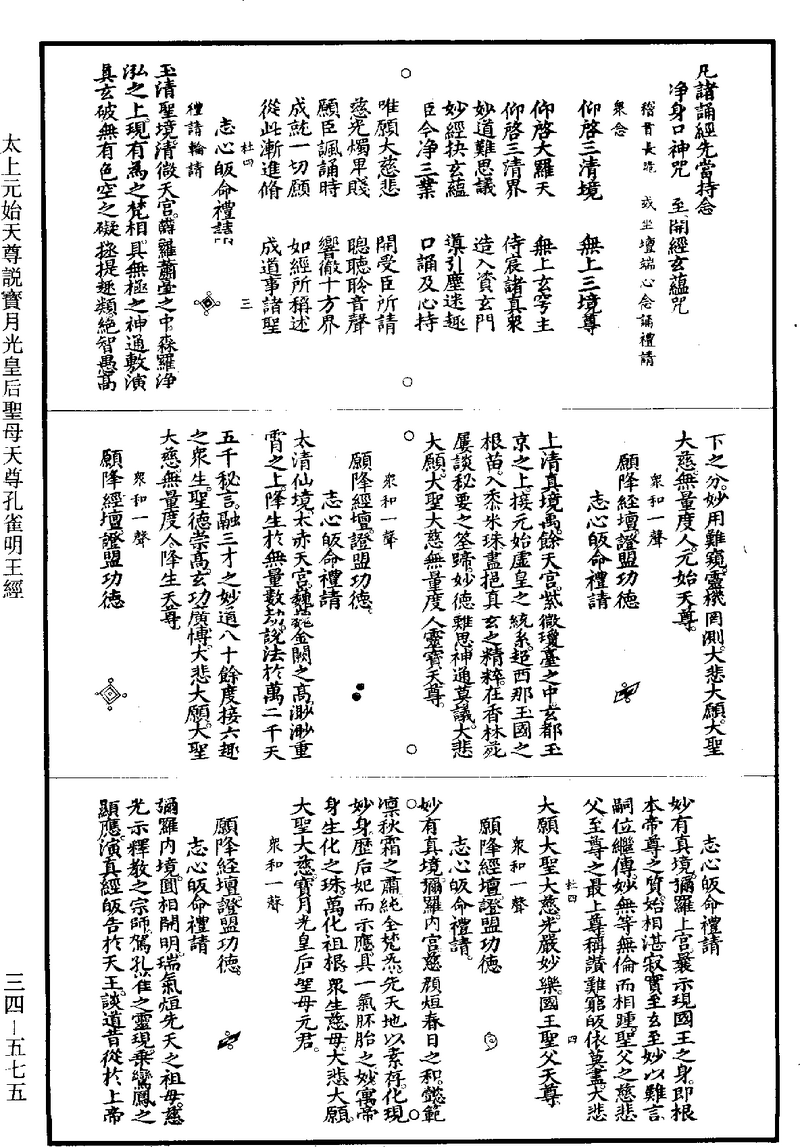 太上元始天尊説寶月光皇后聖母天尊孔雀明王經
三四—五七五
凡諸誦經先當持念
淨身口神咒　至開經玄蘊咒
稽首長跪　或坐壇端心念誦禮請
衆念
仰啓三清境　無上三境尊
仰啓大羅天　無上玄穹主
仰啓三清界　侍宸諸真衆
妙道難思議　造入資玄門
妙經抉玄蘊　㒹引塵迷趣
臣今淨三業　口誦及心持
唯願大慈悲　開受臣所請
慈光燭卑賤　聰聽聆音聲
願臣諷誦時　響徹十方界
成就一切願　如經所稱述
從此漸進脩　成道事諸聖
杜四　三
志心皈命禮請
禮請輪請
玉清聖境清微天宮欝羅蕭臺之中森羅淨
泓之上現有為之梵相具無極之神通敷演
真玄破無有色空之礙拯提趣類絶智愚高
下之分妙用難窺靈機罔測大悲大願大聖
大慈無量度人元始天尊
衆和一聲
願降經壇證盟功德
志心皈命禮請
上清真境禹餘天宮紫微瓊臺之中玄都玉
京之上接元始虚皇之統系超西那玉國之
根苗入黍米珠盡挹真玄之精粹在香林苑
屢談秘要之筌蹄妙德難思神通莫議大悲
大願大聖大慈無量度人靈寶天尊
衆和一聲
願降經壇證盟功德
志心皈命禮請
太清仙境太赤天宮巍巍金闕之高渺渺重
霄之上降生於無量數劫說法於萬二千天
五千秘言融三才之妙道八十餘度接六趣
之衆生聖德崇高玄功廣博大悲大願大聖
大慈無量度人降生天尊
衆和一聲
願降經壇證盟功德
志心皈命禮請
妙有真境彌羅上宮曩示現國王之身即根
本帝尊之質始相湛寂實至玄至妙以難言
嗣位繼傳妙無等無倫而相踵聖父之慈悲
父至尊之最上尊稱讚難窮皈依莫盡大悲
杜四　四
大願大聖大慈光嚴妙樂國王聖父天尊
衆和一聲
願降經壇證盟功德
志心皈命禮請
妙有真境彌羅内宮慈顔烜春日之和懿範
凛秋霜之肅純全梵炁先天地以素存化現
妙身歷后妃而示應具一氣胚胎之妙寓帝
身生化之珠萬化祖根衆生慈母大悲大願
大聖大慈寶月光皇后聖母元君
衆和一聲
願降經壇證盟功德
志心皈命禮請
彌羅内境圓相開明瑞氣烜先天之祖母慈
光示釋教之宗師駕孔雀之靈現乘鸞鳳之
顯應演真經皈告於天王談道昔從於上帝